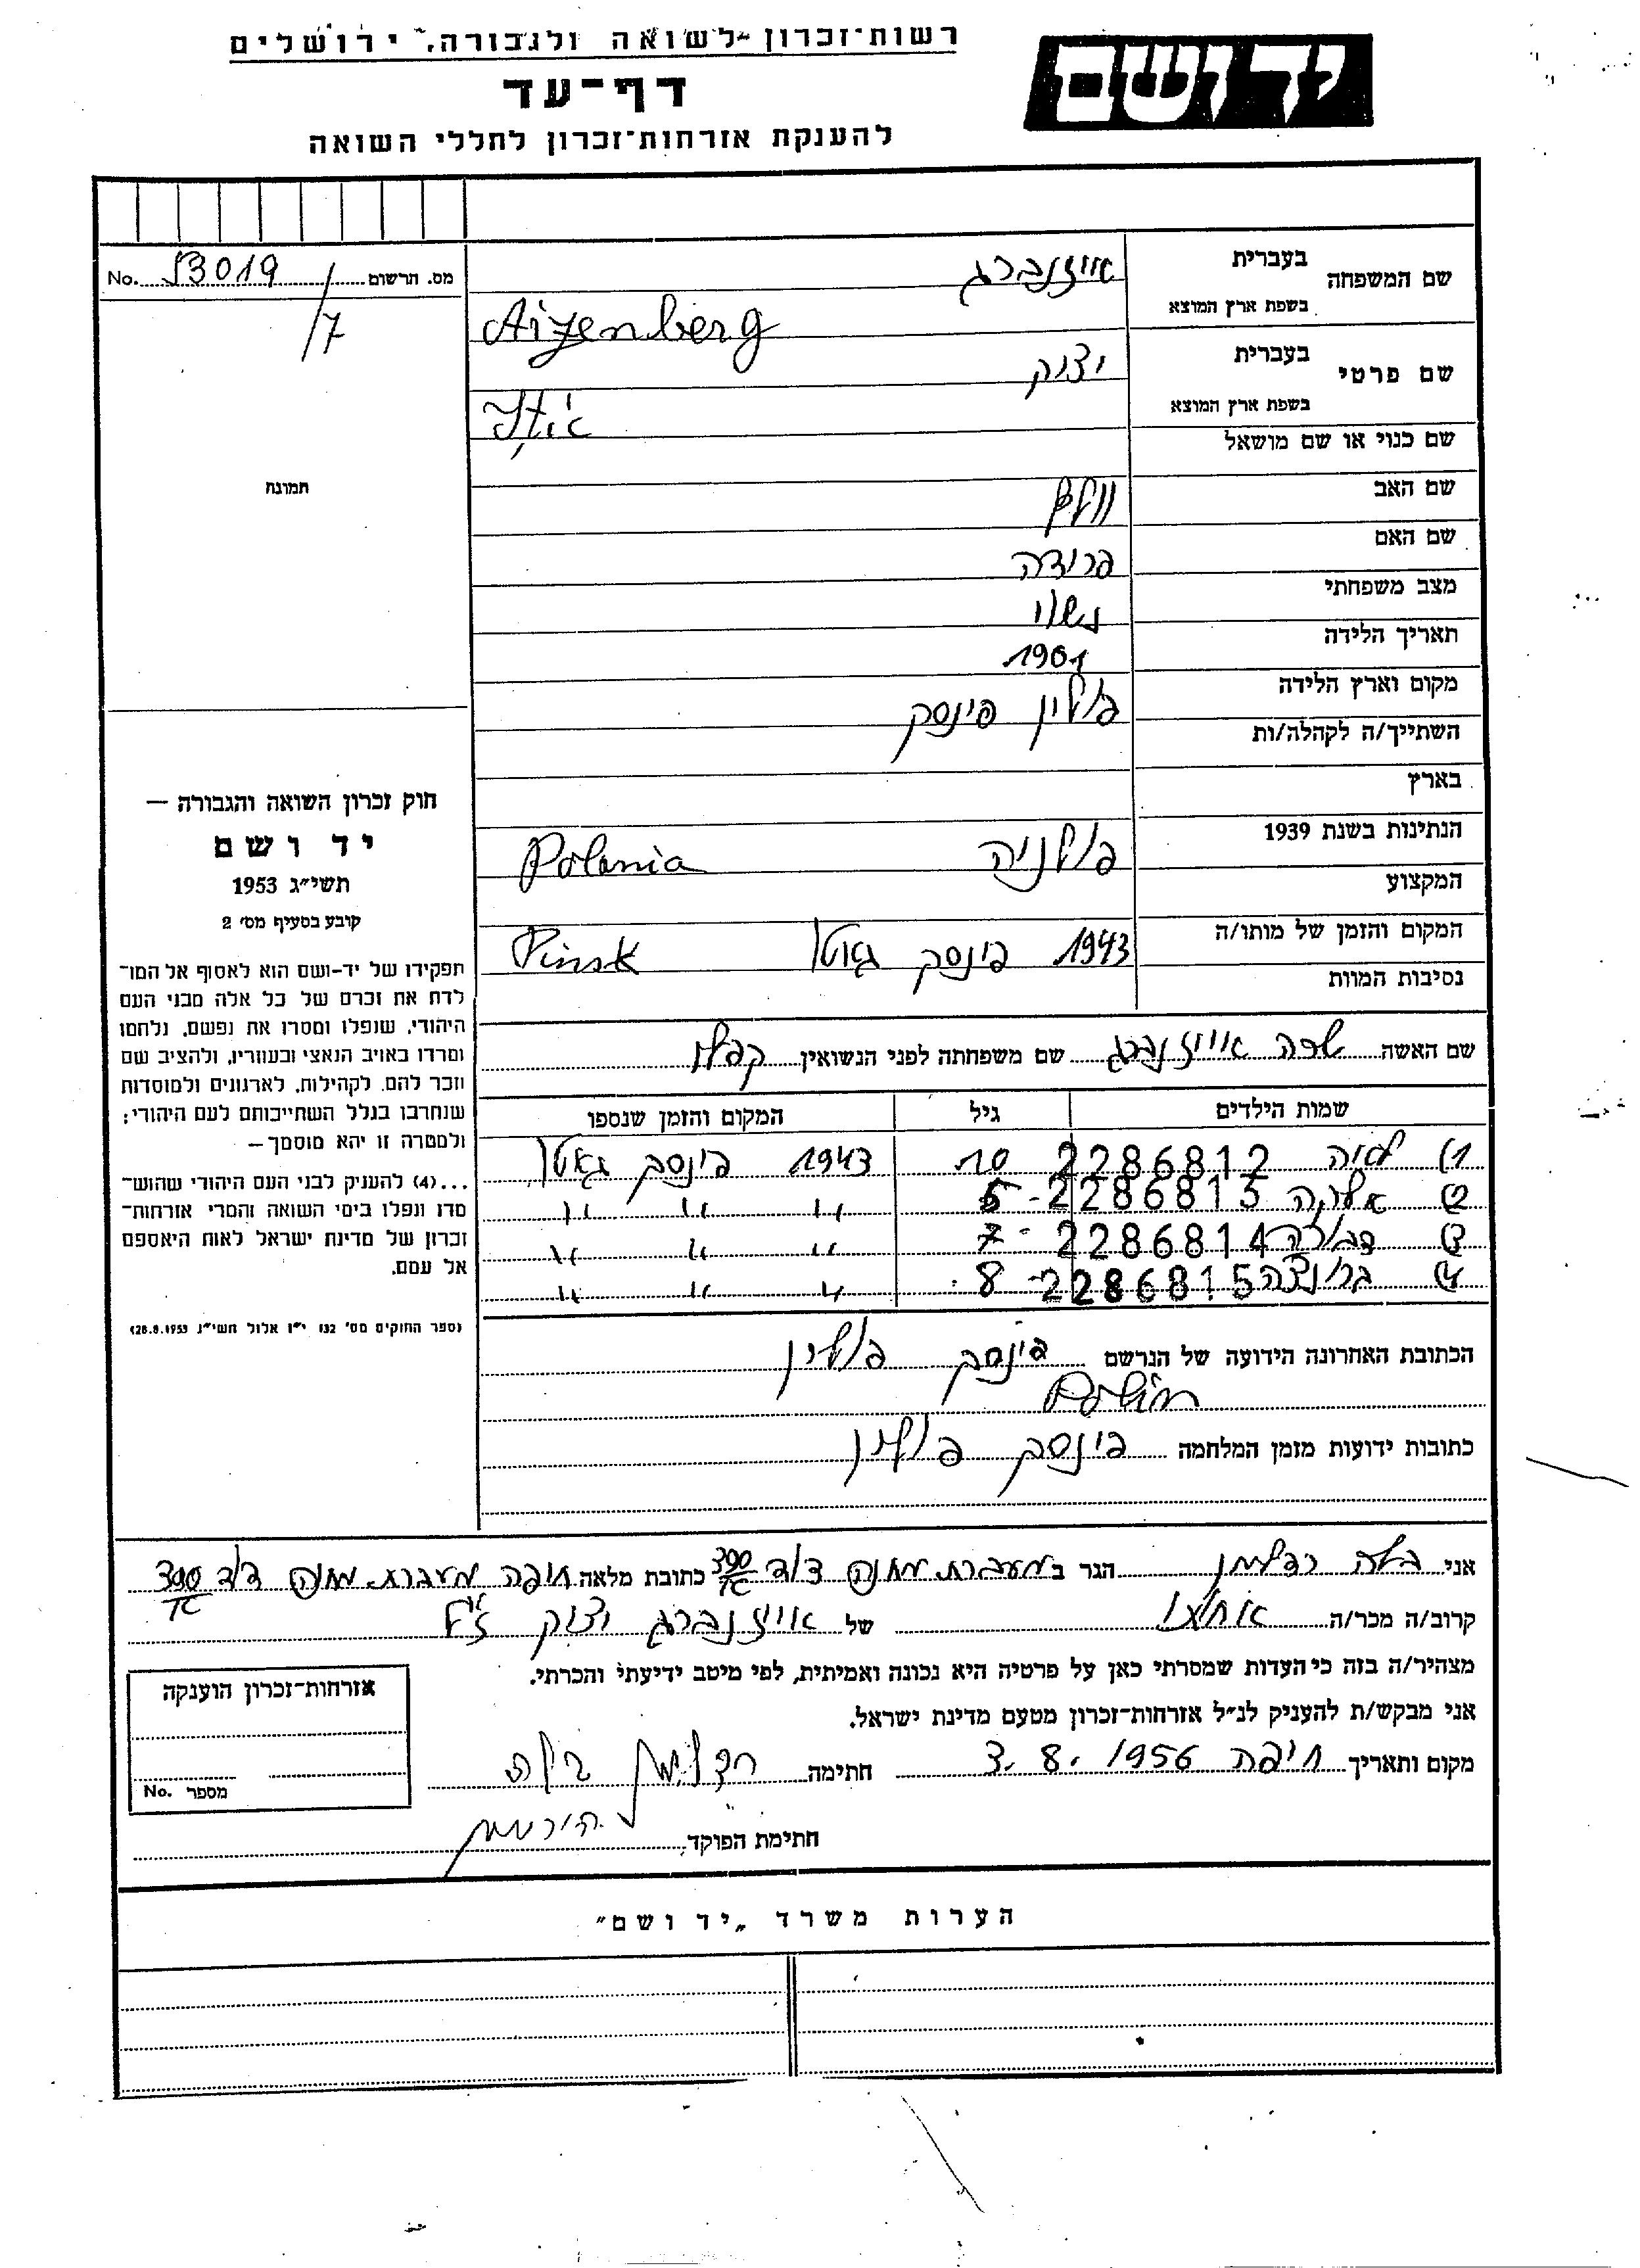 רשות־זכרון לשואה ולגבורה, ירושלים
יד ושם
דף־עד
להענקת אזרחות־זכרון לחללי השואה
מס. הרשום 53019 No.
/7
תמונה
שם המשפחה בעברית אייזנברג
בשפת ארץ המוצא Aizenberg
שם פרטי בעברית יצחק
בשפת ארץ המוצא
שם כנוי או שם מושאל
שם האב וולף
שם האם פרידה
מצב משפחתי נשוי
תאריך הלידה 1901
מקום וארץ הלידה פולין פינסק
השתייך/ה לקהלה/ות
בארץ
הנתינות בשנת 1939 פולניה Polania
המקצוע
המקום והזמן של מותו/ה 1943 פינסק גאטו Pinsk
נסיבות המוות
חוק זכרון השואה והגבורה —
יד ושם
תשי״ג 1953
קובע בסעיף מס׳ 2
תפקידו של יד־ושם הוא לאסוף אל המו־
לדת את זכרם של כל אלה מבני העם
היהודי, שנפלו ומסרו את נפשם, נלחמו
ומרדו באויב הנאצי ובעוזריו, ולהציב שם
וזכר להם, לקהילות, לארגונים ולמוסדות
שנחרבו בגלל השתייכותם לעם היהודי;
ולמטרה זו יהא מוסמך —
...(4) להעניק לבני העם היהודי שהוש־
מדו ונפלו בימי השואה והמרי אזרחות־
זכרון של מדינת ישראל לאות היאספם
אל עמם.
(ספר החוקים מס׳ 132 י״ז אלול תשי״ג 28.8.1953)
שם האשה אייזנברג שם משפחתה לפני הנשואין קפלן
שמות הילדים גיל המקום והזמן שנספו
1) לאיה 2286812 10 1943 פינסק גאטו
2) 2286813 5 〃 〃 〃
3) דבורה 2286814 7 〃 〃 〃
4) 2286815 8 〃 〃 〃
הכתובת האחרונה הידועה של הנרשם פינסק פולין
כתובות ידועות מזמן המלחמה פינסק פולין
אני בלה רדלמן הגר ב מעברת מחנה דוד 390/א כתובת מלאה חיפה מעברת מחנה דוד 390/א
קרוב/ה מכר/ה אחותו של אייזנברג יצחק ז״ל
מצהיר/ה בזה כי העדות שמסרתי כאן על פרטיה היא נכונה ואמיתית, לפי מיטב ידיעתי והכרתי.
אני מבקש/ת להעניק לנ״ל אזרחות־זכרון מטעם מדינת ישראל.
מקום ותאריך חיפה 3.8.1956 חתימה רדלמן בילה
חתימת הפוקד
אזרחות־זכרון הוענקה
מספר No.
הערות משרד „יד ושם״